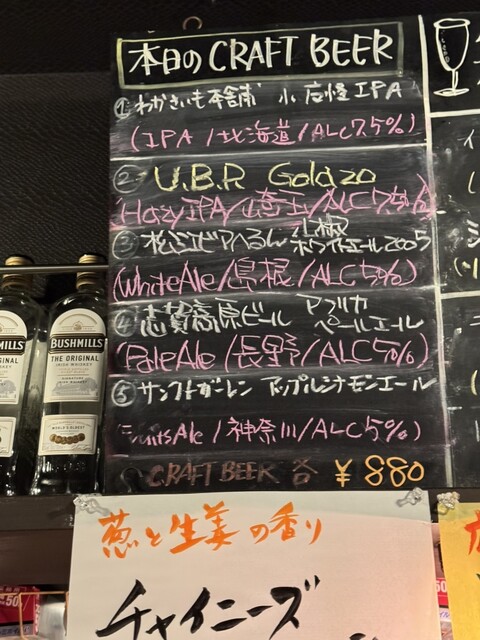 本日のCRAFT BEER
①わかさいも本舗 小 IPA
(IPA/北海道/ALC7.5%)
②U.B.P Golazo
(Hazy IPA/埼玉/ALC7.5%)
③松江ビアへるん 山椒
ホワイトエール2005
(White Ale/島根/ALC5%)
④志賀高原ビール アフリカ
ペールエール
(Pale Ale/長野/ALC5%)
⑤サンクトガーレン アップルシナモンエール
(FruitsAle/神奈川/ALC5%)
CRAFT BEER 各 ¥880
BUSHMILLS
THE ORIGINAL
IRISH WHISKEY
MILLS
葱と生姜の香り
チャイニーズ